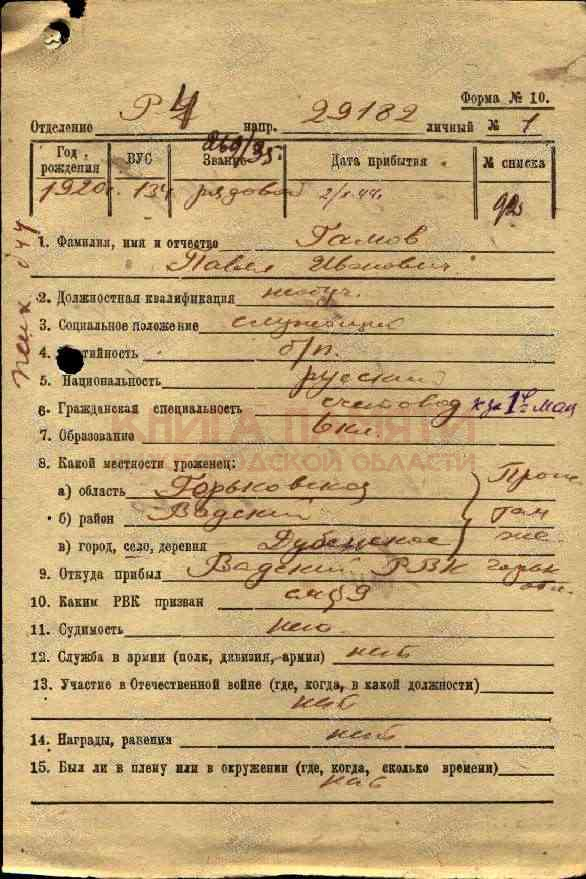 Форма № 10.
Отделение Р-4 напр. 29182 личный № 1
Год рождения ВУС Звание Дата прибытия № списка
1920г. 134 рядовой 2/X.44. 92
1. Фамилия, имя и отчество Гамов
Павел Иванович
2. Должностная квалификация необуч.
3. Социальное положение служащий
4. тийность б/п.
5. Национальность русский
6. Гражданская специальность счетовод к-з 1е мая
7. Образование 6 кл.
КНИГА ПАМЯТИ
НИЖЕГОРОДСКОЙ ОБЛАСТИ
8. Какой местности уроженец:
а) область Горьковская Прож
б) район Вадский там
в) город, село, деревня Дубенское же
9. Откуда прибыл Вадский РВК Горьк обл.
10. Каким РВК призван
11. Судимость нет
12. Служба в армии (полк, дивизия, армия) нет
13. Участие в Отечественной войне (где, когда, в какой должности)
нет
14. Награды, ранения нет
15. Был ли в плену или в окружении (где, когда, сколько времени)
нет